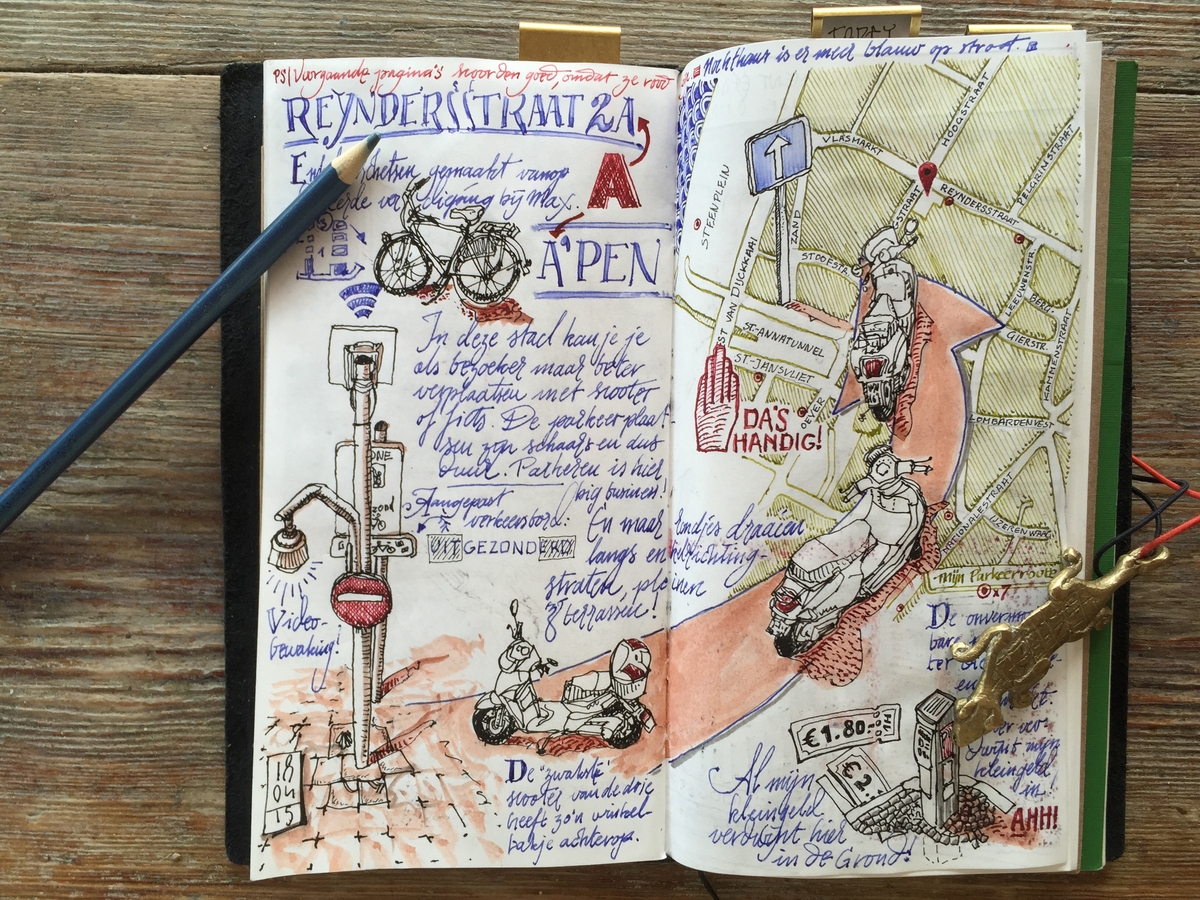 TODAY
PS/ Voorgaande pagina's scoorden goed, omdat ze rood
REYNDERSSTRAAT 2A
schetsen gemaakt vanop
bij Max.
A
A'PEN
In deze stad kan je je
als bezoeker maar beter
verplaatsen met scooter
of fiets. De parkeerplaat-
sen zijn schaars en dus
duur. Parkeren is hier
big business!
Aangepast
verkeersbord:
UIT GEZOND ERD
ZONE
En maar rondjes draaien
langs enkelrichting-
straten, pleinen
& terrassen!
Video-
bewaking!
18
04
15
De "zwalste"
scooter van de drie
heeft zo'n winkel-
bakje achterop.
Nochthans is er meer blauw op straat.
STEENPLEIN
ZAND
VLASMARKT
HOOGSTRAAT
PELGRIMSTRAAT
REYNDERSSTRAAT
STOOFSTR.
ST VAN DIJCKKAAI
ST-ANNATUNNEL
ST-JANSVLIET
OEVER
LEEUWENSTR.
BERG
GIERSTR.
KAMMENSTRAAT
LOMBARDENVEST
NATIONALESTRAAT
IJZERENWAAG
DA'S
HANDIG!
mijn Parkeerroute
x7
De onvermij-
bare
kleingeld
in!
AHH!
€1.80.-
1H
€2.
Al mijn
kleingeld
verdwijnt hier
in de Grond!